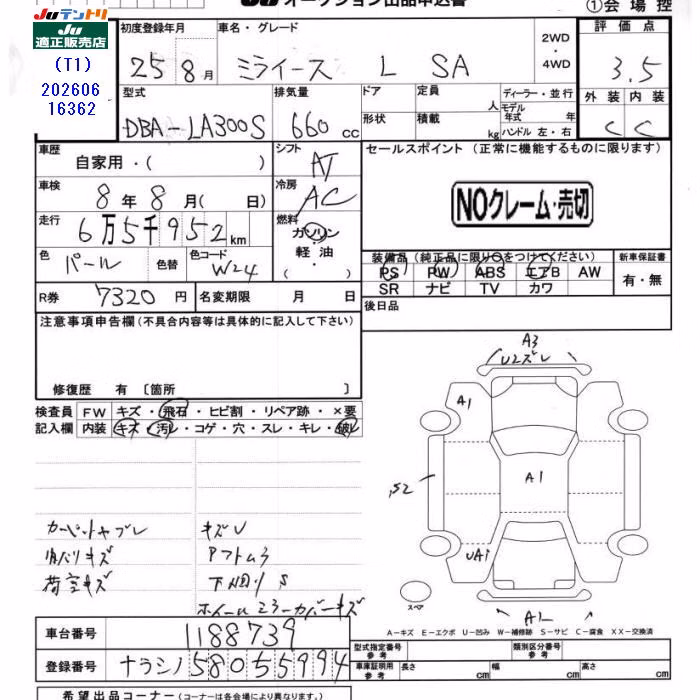 JUテントリ
JU
適正販売店
(T1)
202606
16362
JU オークション出品申込書
①会場控
初度登録年月
車名・グレード
2WD
・
4WD
評価点
25 8月
ミライース L SA
3.5
型式
排気量
ドア
定員
人
ディーラー・並行
モデル年式 年
ハンドル 左・右
外装
内装
DBA-LA300S
660cc
形状
積載
kg
C C
車歴
自家用・( )
シフト
AT
セールスポイント (正常に機能するものに限ります)
車検
8年8月( 日)
冷房
AC
NOクレーム・売切
走行
6万5千952km
燃料
ガソリン
軽油
( ・ )
色
パール
色替
色コード
W24
装備品(純正品に限り○をつけてください)
新車保証書
PS PW ABS エアB AW
SR ナビ TV カワ
有・無
R券
7320円
名変期限
月 日
後日品
注意事項申告欄(不具合内容等は具体的に記入して下さい)
修復歴 有 〔箇所 〕
検査員
記入欄
FW
キズ・飛石・ヒビ割・リペア跡・×要
内装
キズ・汚レ・コゲ・穴・スレ・キレ・破レ
A3
U2ズレ
A1
S2
A1
UA1
A1
スペア
カーペットヤブレ
キズU
内バリキズ
アフトムラ
荷室キズ
下回りS
ホイールミラーカバーキズ
A-キズ E-エクボ U-凹み W-補修跡 S-サビ C-腐食 XX-交換済
車台番号
1188739
登録番号
ナラシノ58055994
型式指定番号
参考
類別区分番号
参考
車庫証明用
参考
長さ
cm
幅
cm
高さ
cm
希望出品コーナー(コーナーは各会場により異なります。)